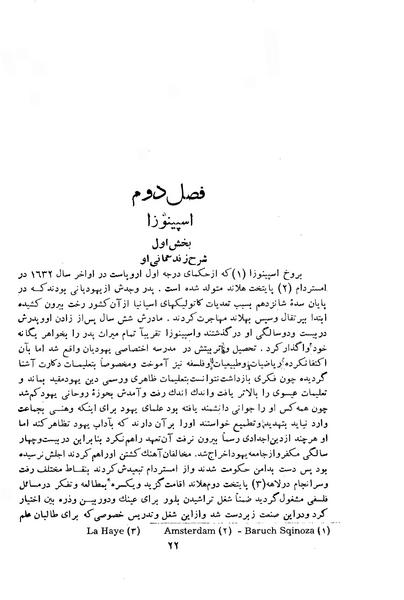 فصل دوم
اسپینوزا
بخش اول
شرح زندگانی او
بروخ اسپینوزا (۱) که از حکمای درجه اول اروپاست در اواخر سال ۱۶۳۲ در
امستردام (۲) پایتخت هلاند متولد شده است . پدر وجدش از یهودیانی بودند که در
پایان سدهٔ شانزدهم بسبب تعدیات کاتولیکهای اسپانیا از آن کشور رخت بیرون کشیده
ابتدا بپرتقال وسپس بهلاند مهاجرت کردند . مادرش شش سال پس از زادن او و پدرش
در بیست ودو سالگی او در گذشتند واسپینوزا تقریباً تمام میراث پدر را بخواهر یگانه
خود واگذار کرد . تحصیل وتربیتش در مدرسه اختصاصی یهودیان واقع شد اما بآن
اکتفا نکرده ریاضیات وطبیعیات وفلسفه نیز آموخت ومخصوصاً بتعلیمات دکارت آشنا
گردیده چون فکری بازداشت نتوانست بتعلیمات ظاهری ورسمی دین یهود مقید بماند و
تعلیمات عیسوی را بالاتر یافت واندك اندك رفت وآمدش بحوزهٔ روحانی یهود کم شد
چون همه کس او را جوانی دانشمند یافته بود علمای یهود برای اینکه وهنی بجماعت
وارد نیاید بتهدید وتطمیع خواستند اورا برآن دارند که بآداب یهود تظاهر کند اما
او هر چند از دین اجدادی رسماً بیرون نرفت آن تعهد راهم نکرد بنابراین در بیست وچهار
سالگی مکفر واز جامعه یهود اخراج شد. مخالفان آهنگ کشتن اوراهم کردند اجلش نرسیده
بود پس دست بدامن حکومت شدند واز امستردام تبعیدش کردند بنقاط مختلف رفت
وسرانجام در لاهه (۳) پایتخت دوم هلاند اقامت گزید ویکسره بمطالعه وتفکر در مسائل
فلسفی مشغول گردید ضمناً شغل تراشیدن بلور برای عینك ودوربین وذره بین اختیار
کرد ودراین صنعت زبردست شد وازاین شغل وتدریس خصوصی که برای طالبان علم
(۱) Baruch Sqinoza - (۲) Amsterdam (۳) La Haye
۲۲